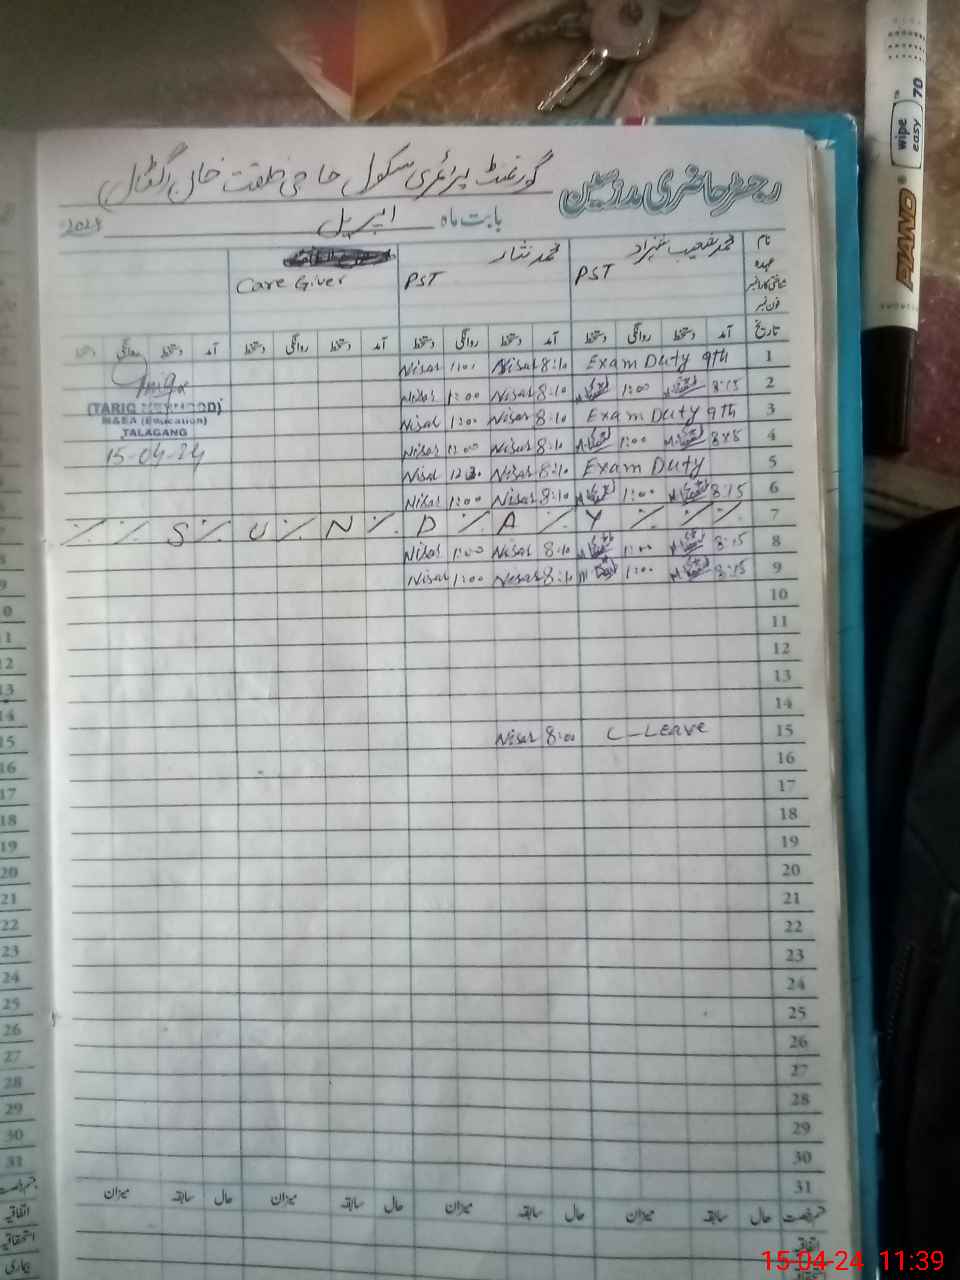 رجسٹر حاضری مدرسین گورنمنٹ پرائمری سکول حاجی خلقت خان
بابت ماہ اپریل 2024
نام محمد شعیب شہزاد محمد نثار
عہدہ PST PST Care Giver
شناختی کارڈ نمبر
فون نمبر
تاریخ آمد دستخط روانگی دستخط آمد دستخط روانگی دستخط آمد دستخط روانگی دستخط آمد دستخط روانگی دستخط
1 Exam Duty 9th 8:10 Nisar 1:00 Nisar
2 8:15 1:00 8:10 Nisar 1:00 Nisar
3 Exam Duty 9th 8:10 Nisar 1:00 Nisar
4 1:00 8:10 Nisar Nisar
5 Exam Duty 8:10 Nisar Nisar
6 8:15 1:00 8:10 Nisar 1:00 Nisar
7 S U N D A Y
8 8:15 1:00 8:10 Nisar 1:00 Nisar
9 8:15 1:00 8:10 Nisar 1:00 Nisar
(TARIQ MEHMOOD)
M&EA (Education)
TALAGANG
15-04-24
10
11
12
13
14
15 C-Leave 8:00 Nisar
16
17
18
19
20
21
22
23
24
25
26
27
28
29
30
31
قسم رخصت حال سابقہ میزان حال سابقہ میزان حال سابقہ میزان حال سابقہ میزان
اتفاقیہ
9
10
11
12
13
14
15
16
17
18
19
20
21
22
23
24
25
26
27
28
29
30
31
قسم رخصت
اتفاقیہ
استحقاقیہ
بیماری
PIANO
wipe easy 70
15-04-24 11:39